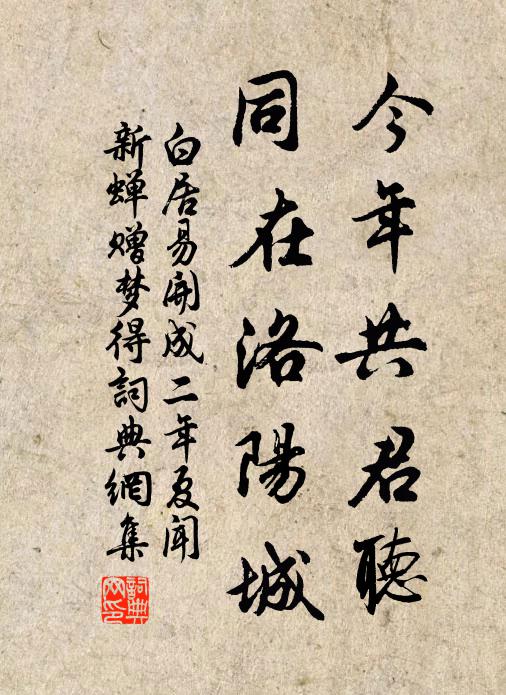 今年共君聽
同在洛陽城
白居易開成二年夏聞
新蟬赠梦得詞典網集
詞典